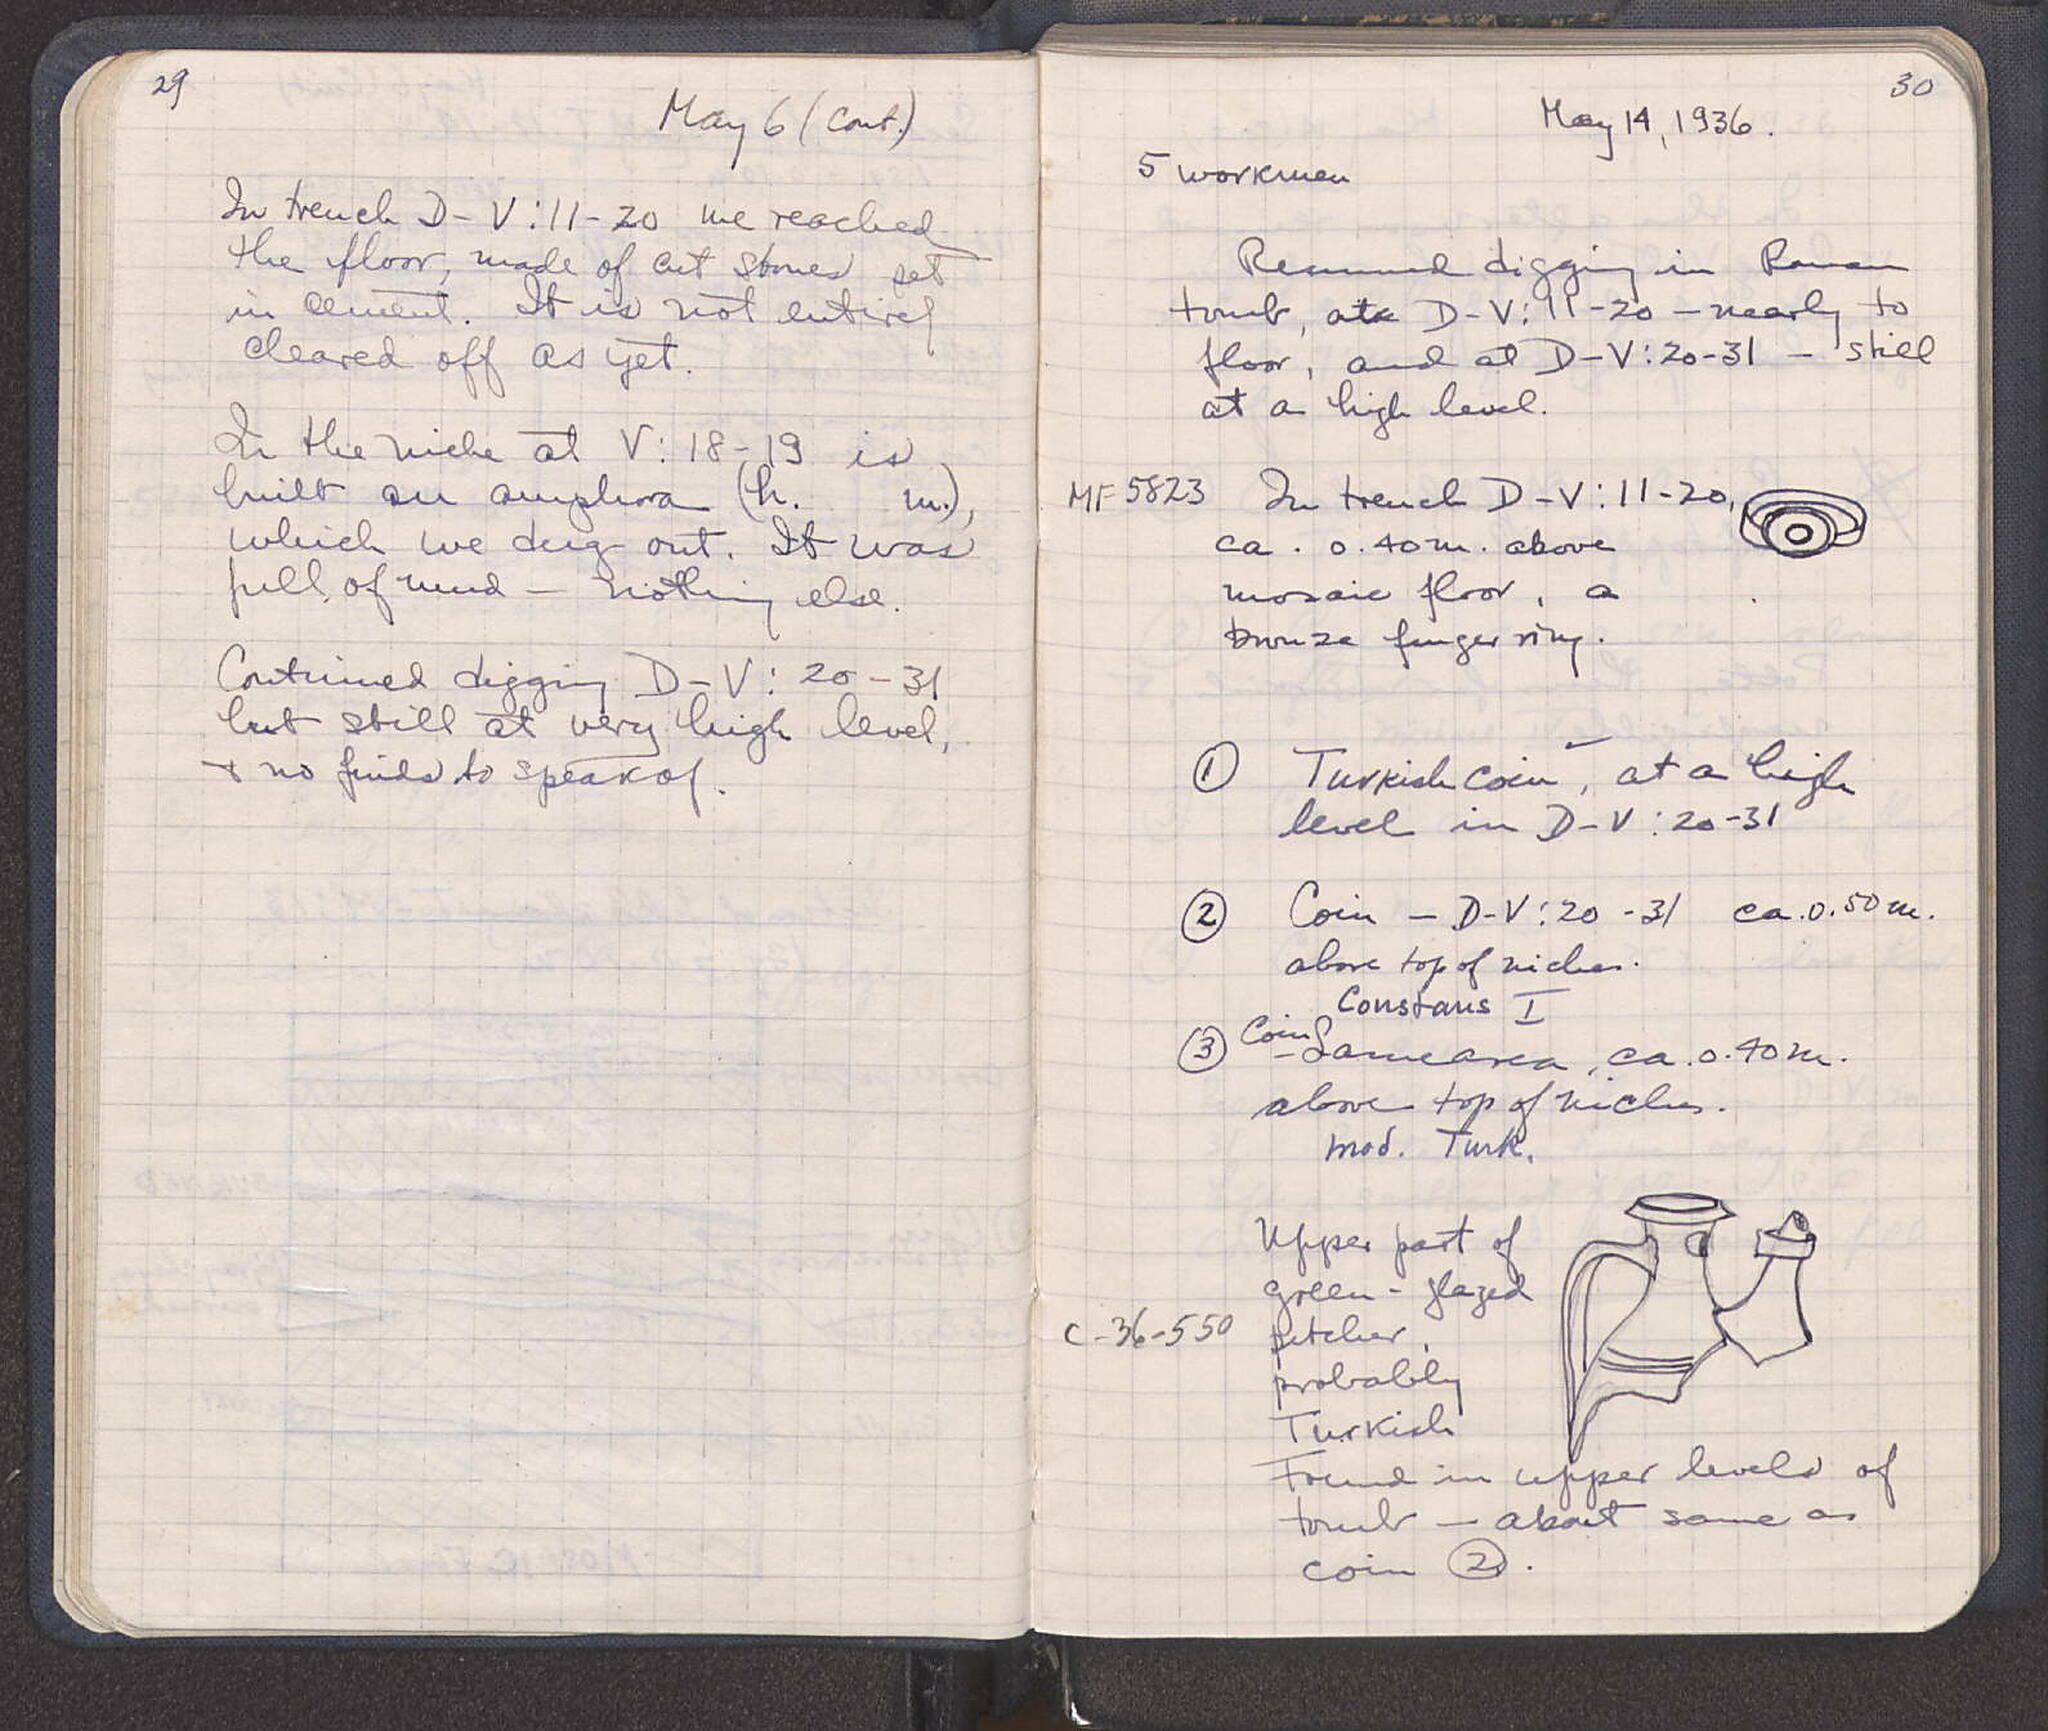 29
May 6 (Cont.)
In trench D-V:11-20 we reached
the floor, made of cut stones set
in cement. It is not entirely
cleared off as yet.
In the niche at V:18-19 is
built an amphora (h.      m.),
which we dug out. It was
full of mud — nothing else.
Continued digging D-V: 20-31
but still at very high level,
+ no finds to speak of.
30
May 14, 1936.
5 workmen
Resumed digging in Roman
tomb, at D-V:11-20 — nearly to
floor, and at D-V:20-31 — still
at a high level.
MF 5823 In trench D-V:11-20,
ca. 0.40 m. above
mosaic floor, a
bronze finger ring.
① Turkish coin, at a high
level in D-V:20-31
② Coin — D-V:20-31 ca. 0.50 m.
above top of niches.
Constans I
③ Coin — Same area, ca. 0.40 m.
above top of niches.
mod. Turk.
Upper part of
green-glazed
C-36-550 pitcher,
probably
Turkish
Found in upper levels of
tomb — about same as
coin ②.